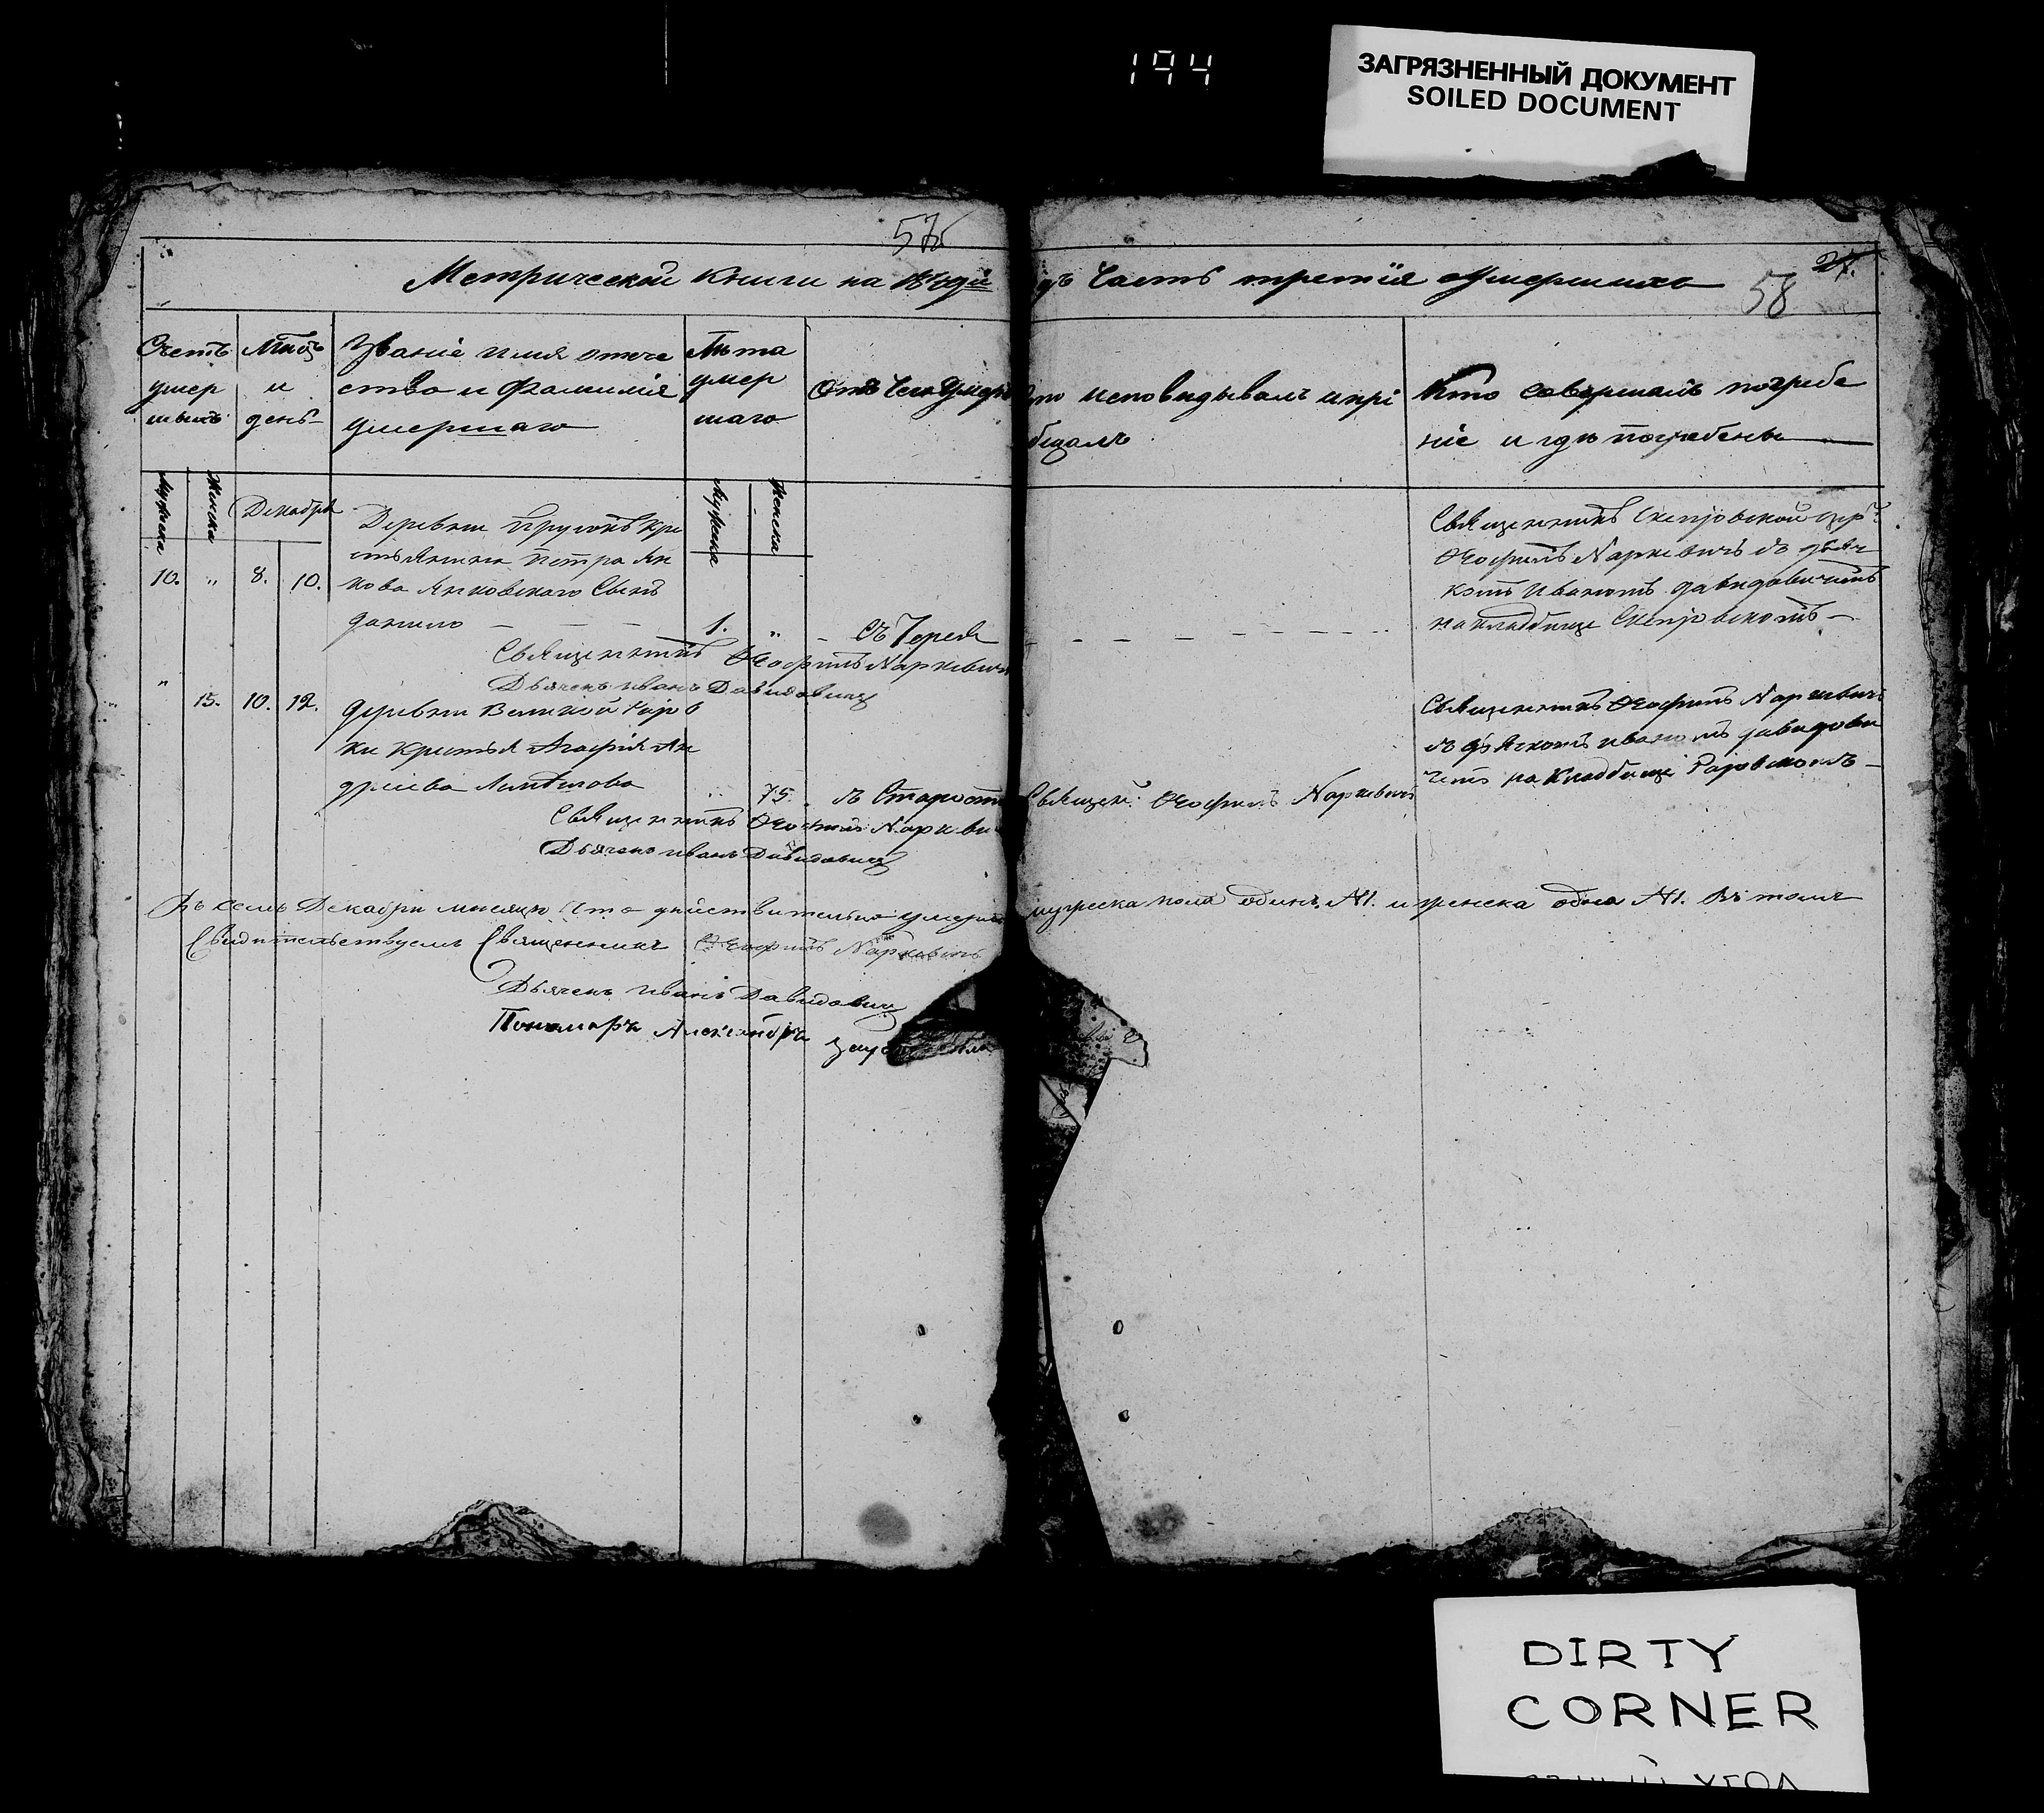 194
ЗАГРЯЗНЕННЫЙ ДОКУМЕНТ
SOILED DOCUMENT
57
58
27.
Метрической книги на годъ Часть третія Умершихъ
Счетъ умер шихъ
Мѣсяцъ и день
Званіе имя отече ство и Фамилія умершаго
Лѣта умер шаго
Отъ чего умеръ
Кто исповѣдывалъ и прі общалъ
Кто совершалъ погребе ніе и гдѣ погребены
Мужеска
Женска
Декабря
Мужеска
Женска
10. „ 8. 10.
Деревни кре
стьянина Петра Ян
кова Янковскаго Сынъ
Данило — — — 1. „ —
Священникъ Ѳеофилъ Наркевичъ
Дьячекъ Иванъ Давидовичъ
Священникъ
Ѳеофилъ Наркевичъ съ дьяч
комъ Иваномъ Давидовичемъ
на кладбище
„ 15. 10. 12.
Деревни Великой
ки крестья Агафія Ан
дреева
75. Старости
Священ: Ѳеофилъ Наркевичъ
Священникъ Ѳеофилъ Наркевичъ
Дьячекъ Иванъ Давидовичъ
Священникъ Ѳеофилъ Наркевичъ
съ дьячкомъ Иваномъ Давидови
чемъ на кладбище
Въ семъ Декабри мисяци что дийствительно умерло мужеска пола одинъ №1. и женска одна №1. въ томъ
Свидительствуемъ Священникъ Ѳеофилъ Наркевичъ
Дьячекъ Иванъ Давидовичъ
Пономарь Александръ
DIRTY
CORNER
УГОЛ